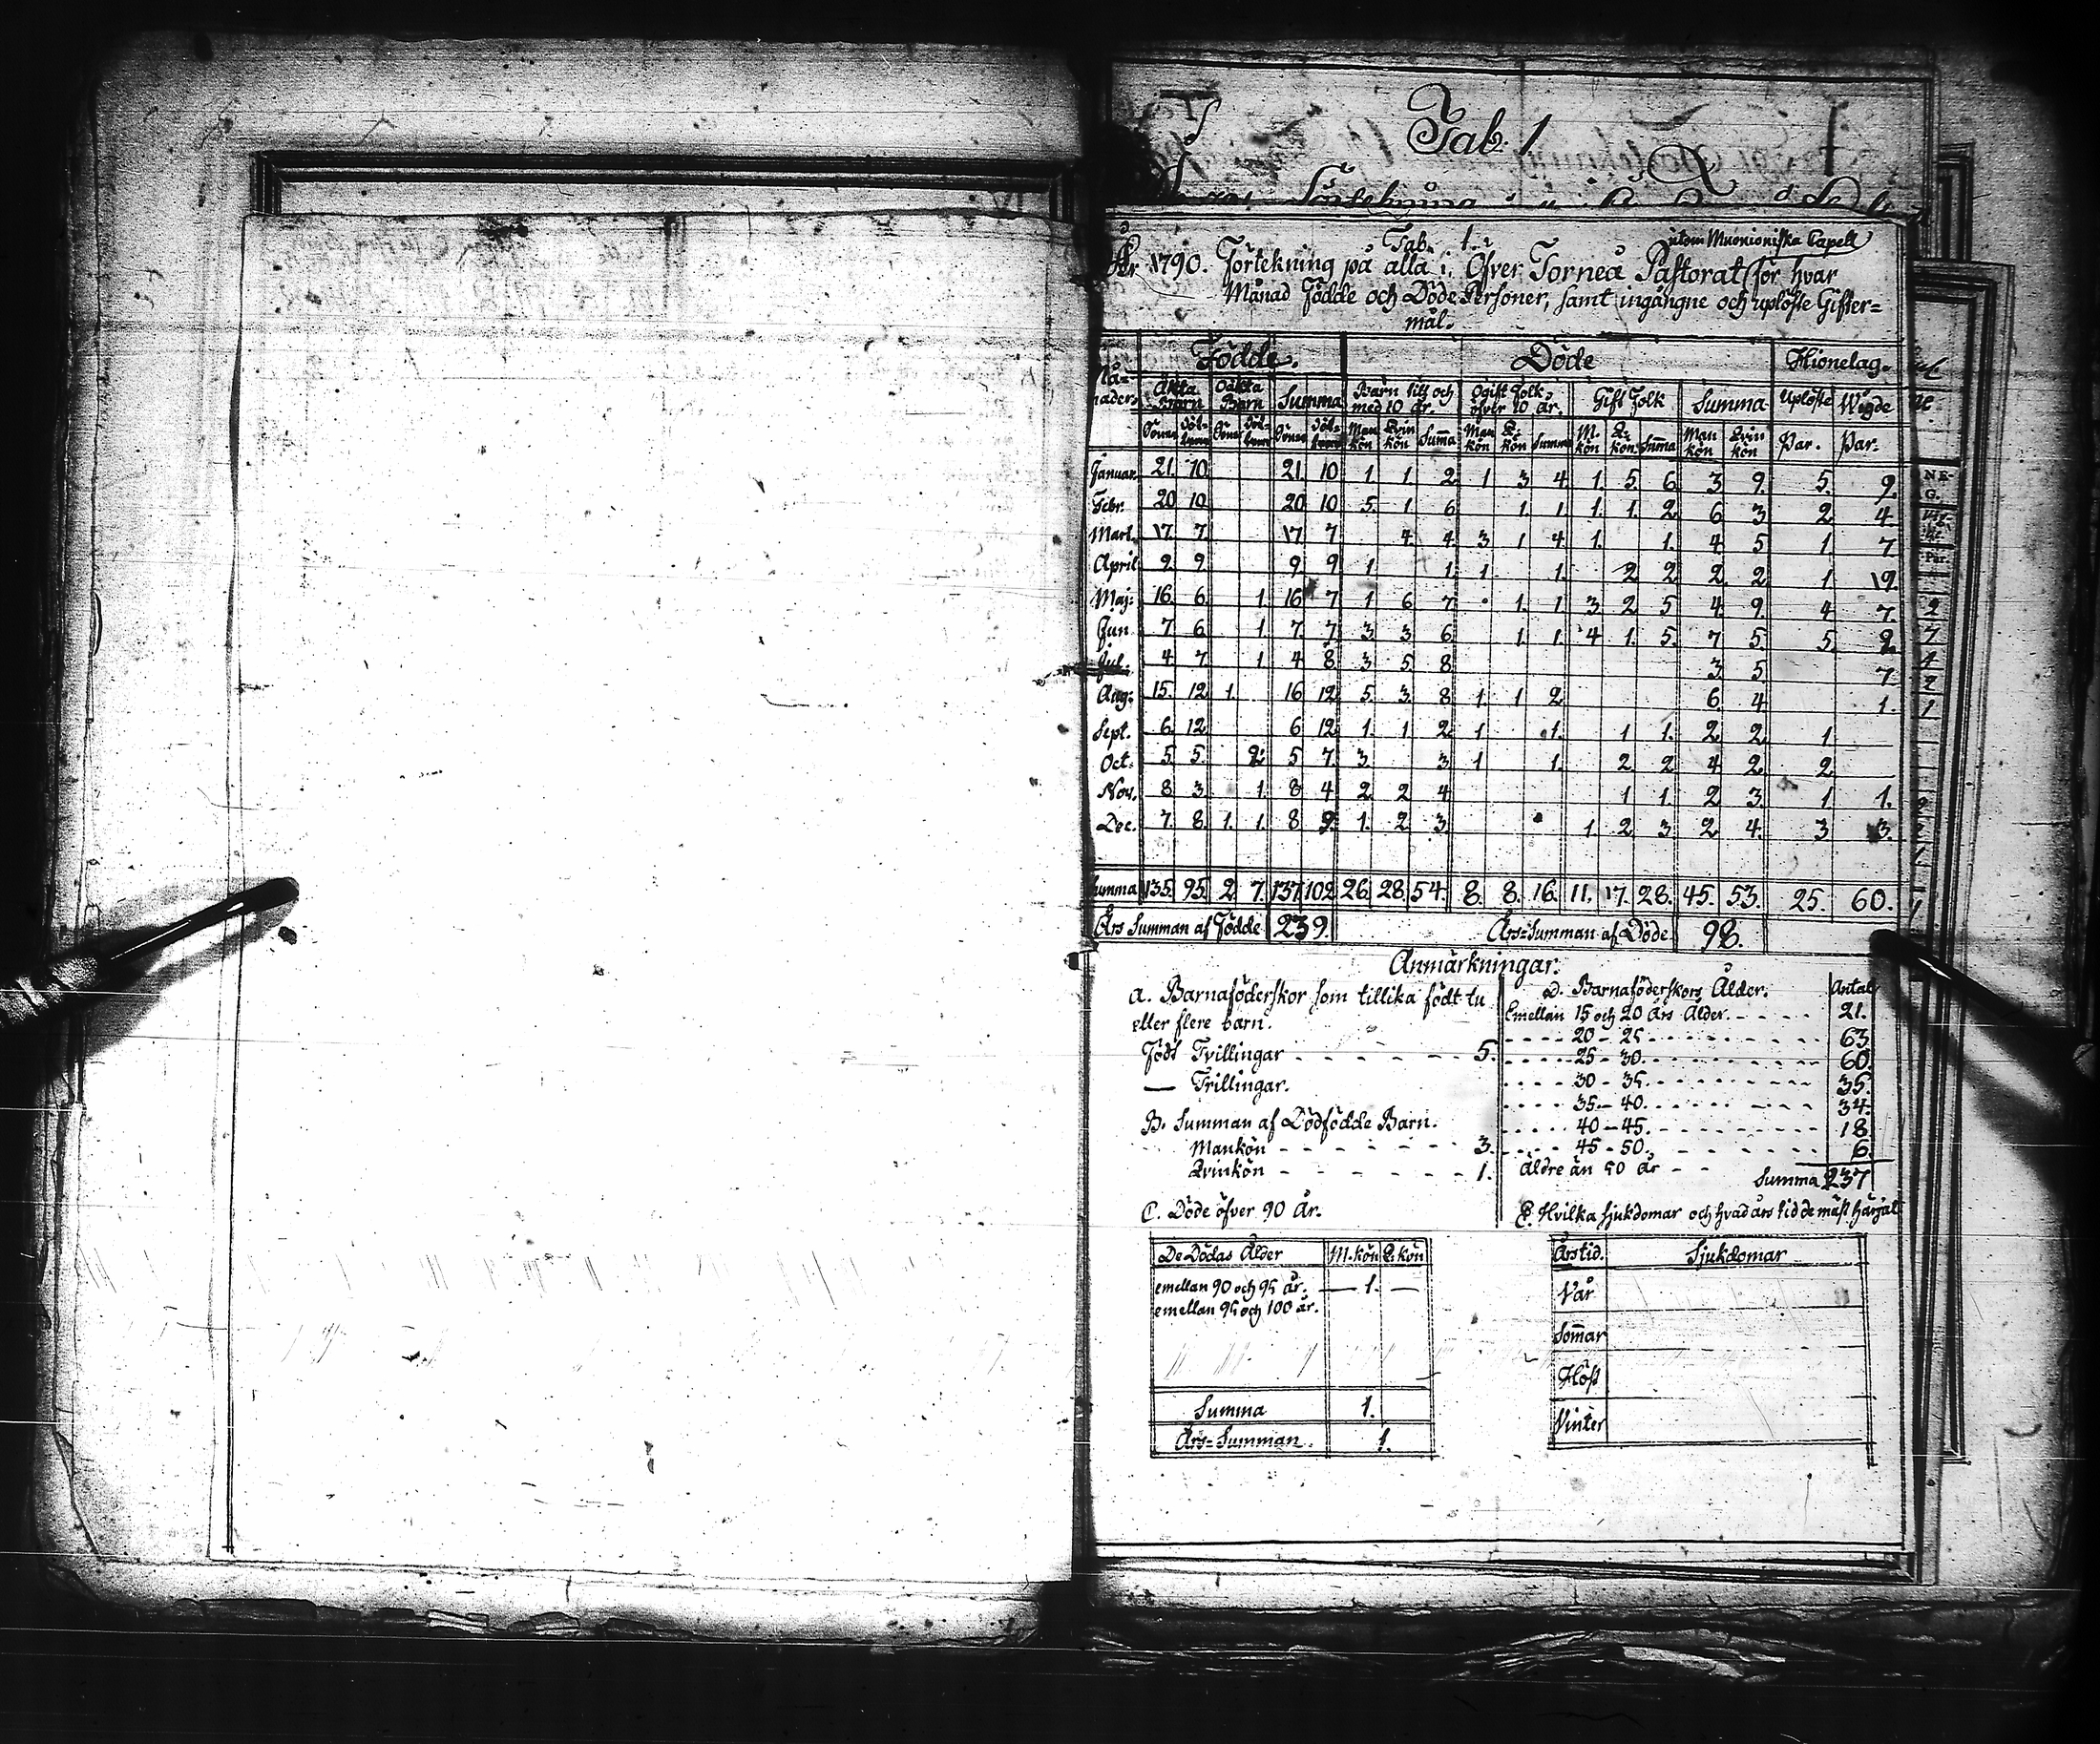 Tab. 1
Tab. 1.
utom Muonioniska Capell
År 1790. Förtekning på alla i Öfver Torneå Pastorat för hvar
Månad Födde och Döde Personer, samt ingångne och uplöste Gifter=
mål.
Må=nader. Födde. Döde Hionelag.
Äkta Barn Oäkta Barn Summa Barn till och med 10 år. Ogift folk öfver 10 år. Gift folk Summa Uplöste Wigde
Söner Döt-trar Söner Döt-trar Söner Döt-trar Man kön Qvin kön Summa Man kön Q. kön Summa M. kön Q. kön Summa Man kön Qvin kön Par. Par.
Januar. 21. 10. 21. 10 1 1 2 1 3 4 1. 5. 6. 3 9. 5. 9.
Febr. 20 10. 20 10 5. 1 6 1. 1. 1. 1. 2 6 3 2 4.
Mart. 17. 7. 17 7 4 4 3 1 4. 1. 1. 4 5 1. 7
April 9. 9. 9 9 1 1 1 1. 2 2 2 2 1 19.
Maj: 16. 6. 1. 16 7 1 6 7 1. 1 3 2 5 4 9. 4 7.
Jun. 7 6 1. 7. 7 3 3 6 1 1. 4 1. 5. 7 5. 5.
Jul. 4 7. 1 4 8 3 5 8 3. 5 7
Aug. 15. 12. 1. 16 12 5. 3. 8 1. 1 2 6. 4 1.
Sept. 6. 12. 6 12 1. 1 2 1 1. 1 1. 2 2 1.
Oct. 5 5. 2 5 7. 3. 3 1 1. 2 2 4 2 2
Nov. 8 3. 1. 8 4 2 2 4 1 1. 2 3. 1 1.
Dec. 7. 8. 1. 1. 8 9. 1. 2 3 1. 2 3. 2 4. 3 3.
Summa 135. 95. 2. 7. 137 102 26. 28. 54. 8. 8. 16. 11. 17. 28. 45. 53. 25. 60.
Års Summan af Födde 239. Års=Summan af Döde 98.
Anmärkningar.
A. Barnaföderskor som tillika födt tu
eller flere barn.
Födt Tvillingar - - - - - - 5.
— Trillingar.
B. Summan af Dödfödde Barn.
Mankön - - - - - - - 3.
Qvinkön - - - - - - - 1.
C. Döde öfver 90 År.
De Dödas Ålder M. kön Q. kön
emellan 90 och 95 år. — 1. —
emellan 95 och 100 år.
Summa 1.
Års=Summan. 1.
D. Barnaföderskors Ålder. Antal
Emellan 15 och 20 Års Ålder. - - - - 21.
- - - - 20 - 25 - - - - 63
- - - - 25 - 30. - - - - 60
- - - - 30 - 35. - - - - 35
- - - - 35. - 40. - - - - 34.
- - - - 40 - 45. - - - - 18
- - - - 45 - 50. - - - - 6
Äldre än 50 år - -
Summa 237
E. Hvilka sjukdomar och hvad års tid de mäst härjat
Årstid. Sjukdomar
Vår
Somar
Höst
Vinter